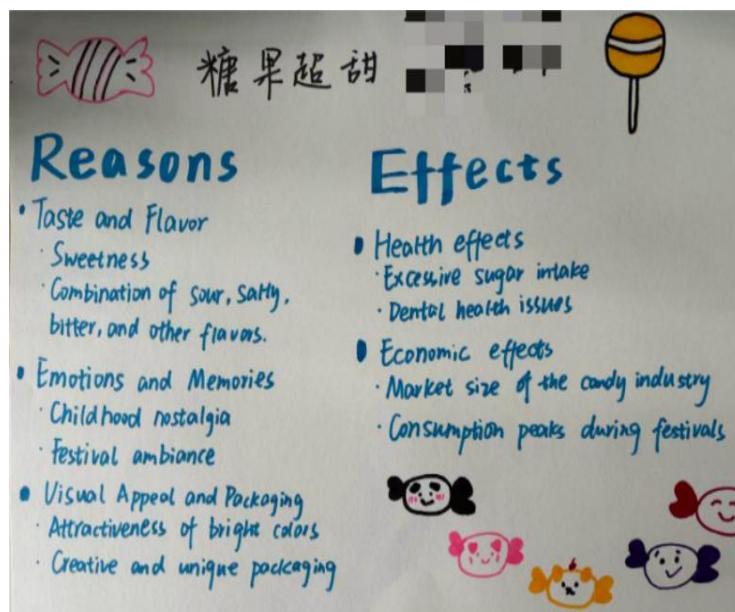 糖果超甜
Reasons
• Taste and Flavor
· Sweetness
· Combination of sour, salty,
bitter, and other flavors.
• Emotions and Memories
· Childhood nostalgia
· Festival ambiance
• Visual Appeal and Packaging
· Attractiveness of bright colors
· Creative and unique packaging
Effects
• Health effects
· Excessive sugar intake
· Dental health issues
• Economic effects
· Market size of the candy industry
· Consumption peaks during festivals